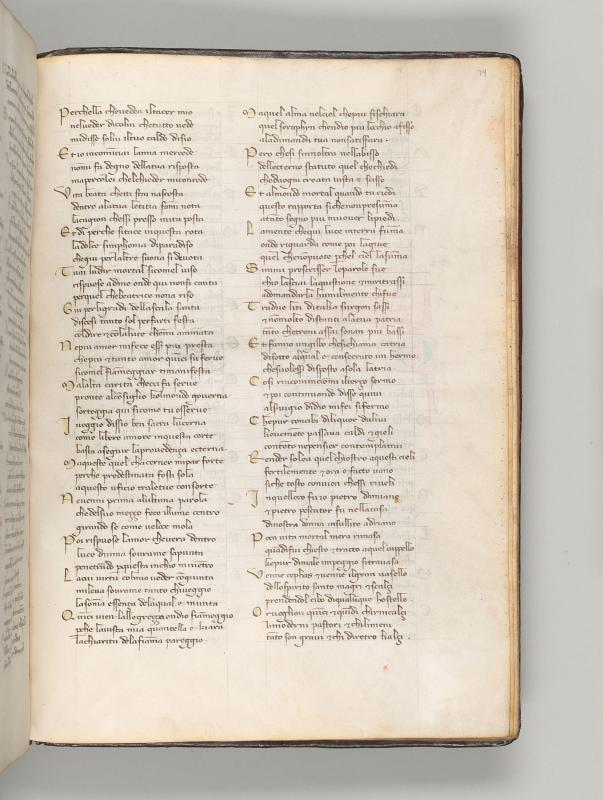 Perchella che vedea iltacer mio
nel veder dicolui chetutto vede
midisse solvi iltuo caldo disio
Et io incominciai lamia mercede
nonmi fa degno dellatua risposta
maper colei chelchieder miconcede
Vita beata chetti stai nascosta
dentro alatua letitia fammi nota
lacagion chessi presso mita posta
Et di perche sitace inquesta rota
ladolce simphonia diparadiso
chegiu per laltre suona si devota
Tuai ludir mortal sicomel viso
rispuose ad me onde qui nonsi canta
perquel chebeatrice nona riso
Giu per ligradi dellascala santa
discesi tanto sol perfarti festa
coldire et colaluce chemi amanta
Nepiu amor mifece esser piu presta
chepiu et tanto amor quinci su ferve
sicomel fiameggiar timanifesta
Malalta carita checci fa serve
pronte alconsiglio kelmondo governa
sorteggia qui sicome tu osserve
I veggio dissio ben sacra lucerna
come libero amore inquesta corte
basta aseguir laprovedenza ecterna
Maqueste quel chacerner mipar forte
perche predestinata fosti sola
aquesto uficio tralletue consorte
Ne venni prima alultima parola
chedelsuo mezzo fece illume centro
girando se come veloce mola
Poi rispuose lamor chevera dentro
luce divina sovrame sapunta
penetrando per questa inchio minventro
Lacui virtu colmio veder congiunta
mileva sovrame tanto chiveggio
lasoma essenza delaqual e munta
Quinci vien lallegrezza ondio fiameggio
perche lavista mia quantella e chiara
lachiarita delafiama pareggio.
Maquel alma nelciel chepiu sischiara
quel seraphyn chendio piu locchio a fisso
aladimanda tua non satisfara.
Pero chesi sinnoltra nellabisso
delleterno statuto quel chechiedi
chedaogni creata vista e scisso
Et almondo mortal quando tu riedi
questo rapporta siche nonpresuma
atanto segno piu muover lipiedi.
Lamente chequi luce interra fuma
onde riguarda come puo lagiue
quel chenonpuote perchel ciel lasuma
Simi prescrisser leparole sue
chio lasciai laquistione et mirtrassi
adomandarla humilmente chifue
Tradue liti ditalia surgon sassi
et nonmolto distanti alatua patria
tanto chetroni assai sonan piu bassi
Et fanno ungibbo chesichiama catria
disotto alqual e consecrato un hermo
chesuolessere disposto asola latria
Cosi rincominciomi ilterzo sermo
et poi continuando disse quivi
alservigio didio mifei sifermo
Chepur concibi diliquor dulivi
lievemente passava caldi et gieli
contento nepensier contemplativi
Render solea quel chiostro aquesti cieli
fertilemente et ora e facto vano
siche tosto convien chessi riveli
Inquelloco fu io pietro damiano
et pietro peccator fu nellacasa
dinostra donna insullito adriano
Poca vita mortal mera rimasa
quandifui chiesto et tracto aquel cappello
kepur dimale inpeggio sitravasa
Venne cephas et venne ilgran vasello
dellospirito santo magri et scalzi
prendendol cibo diqualunque hostello.
Or voglion quinci et quindi chi rincalzi
limoderni pastori et chi limeni
tanto son gravi et chi dirietro lialzi.